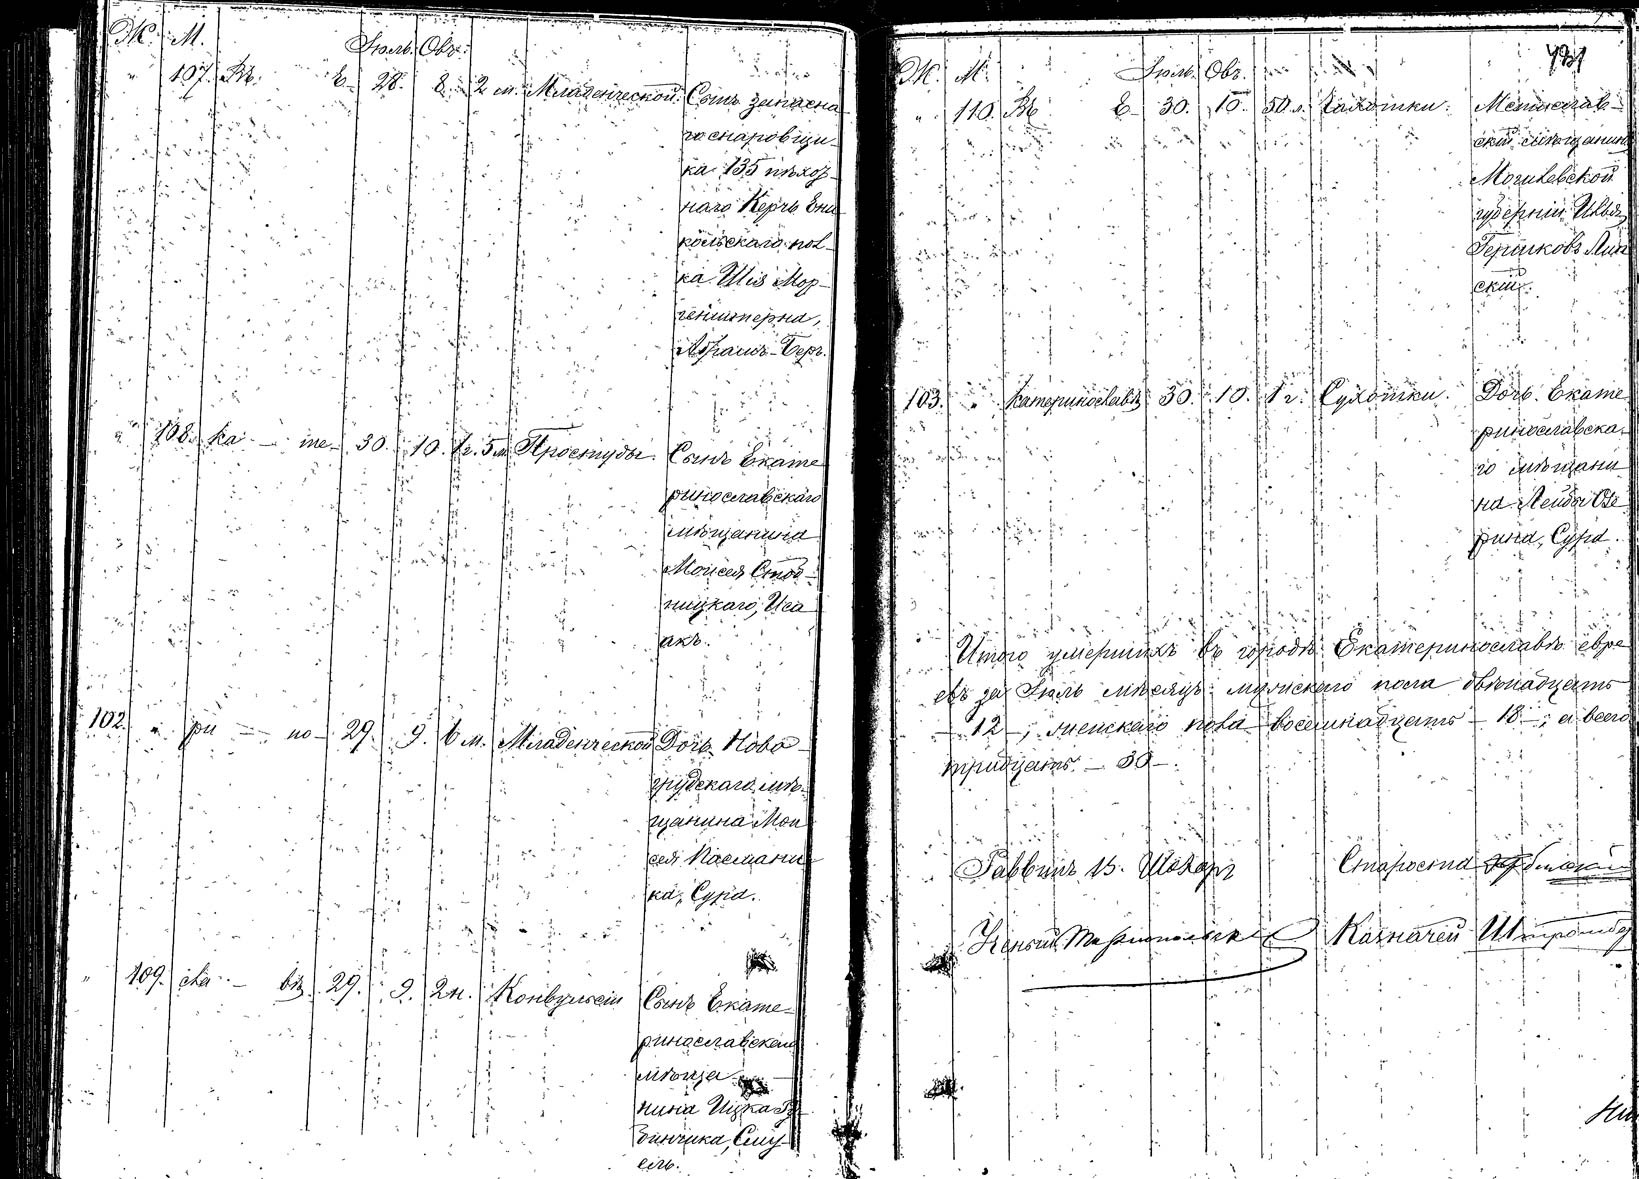 Ж. М. Іюль. Овъ.
" 107. Въ Е 28. 8. 2 м. Младенческой. Сынъ запасна
го снаровщи-
ка 135 пѣхот-
наго Керчь Ени
кольскаго пол-
ка Шія Мор-
генштерна,
Абрамъ-Беръ.
" 108. ка - те- 30. 10. 1 г. 5 м. Простуды. Сынъ Екате
ринославскаго
мѣщанина
Моисея
ницкаго, Иса
акъ.
102. " ри - но- 29. 9. 6 м. Младенческой Дочь Ново-
грудскаго мѣ-
щанина Мои
сея Пасмани-
ка, Сура.
" 109. сла - вѣ. 29. 9. 2 н. Конвульсіи Сынъ Екате-
ринославскаго
мѣща-
нина Ицка
бинчика, Сму-
ель.
431
Ж. М. Іюль. Овъ.
" 110. Въ Е 30. 10. 50 л. Чахотки. Мстислав-
скій мѣщанинъ
Могилевской
губерніи
Гершковъ Лип
скій.
103. " катеринославѣ 30. 10. 1 г. Сухотки. Дочь Екате
ринославска-
го мѣщани
на Лейбы Озе
рина, Сура.
Итого умершихъ въ городѣ Екатеринославѣ евре
евъ за Іюль мѣсяцъ: мужскаго пола двѣнадцать
- 12 -, женскаго пола восемнадцать - 18 -, а всего
тридцать - 30 -.
Раввинъ В. Шохоръ Староста
Ученый Казначей